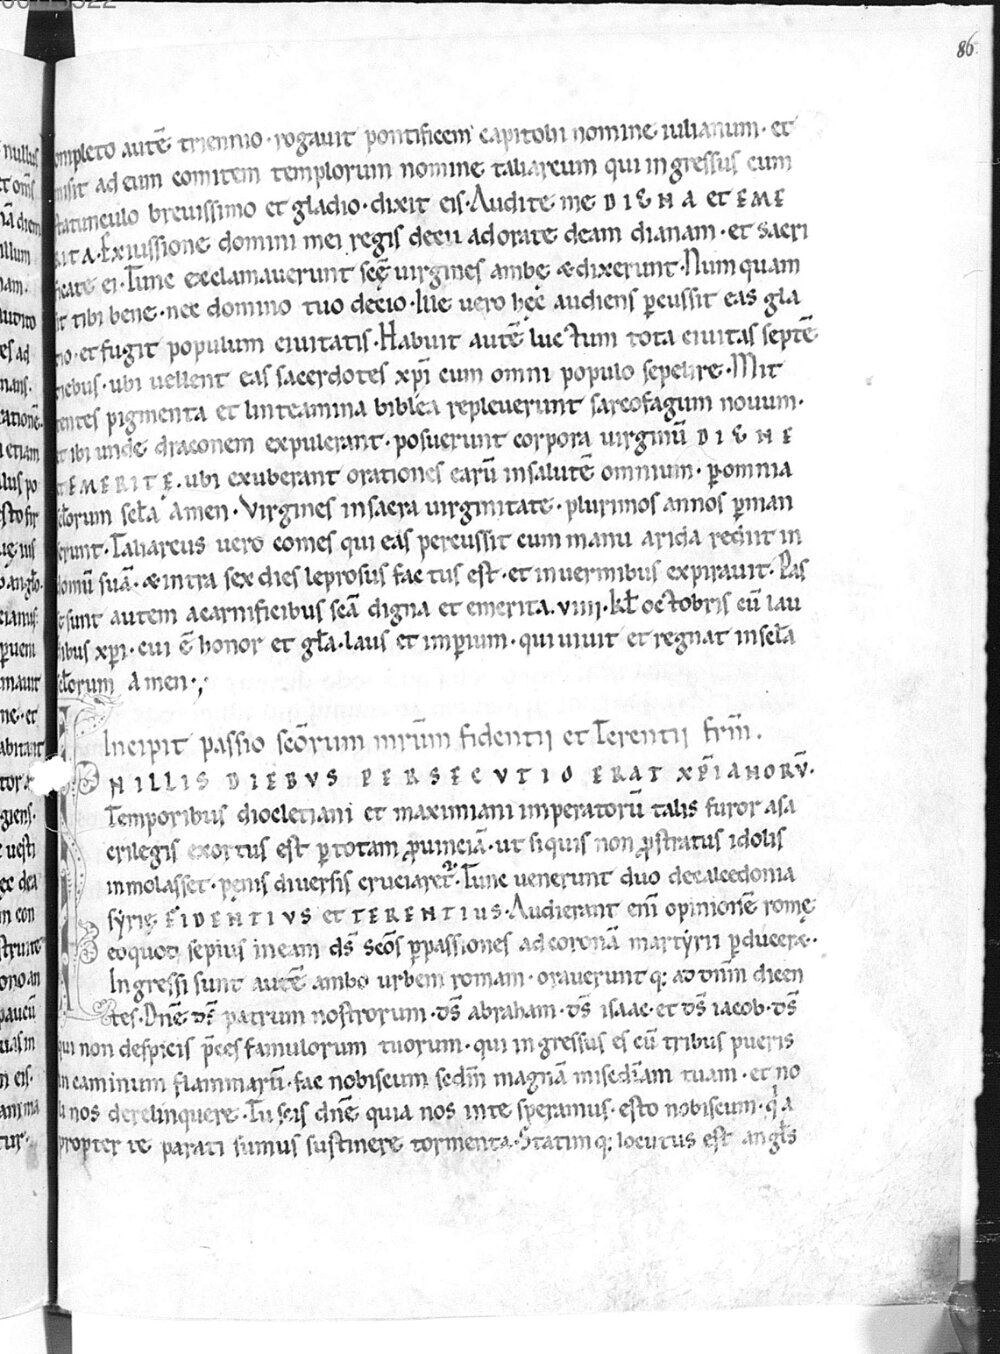 86
ompleto autē triennio · rogauit pontificem capitolii nomine iulianum · et
misit ad eum comitem templorum nomine taliarcum qui ingressus cum
statunculo breuissimo et gladio · dixit eis · Audite me DIGNA et EME
RITA · Ex iussione domini mei regis decii adorate deam dianam · et sacri
ficate ei · Tunc exclamauerunt scę uirgines ambę & dixerunt · Numquam
sit tibi bene · nec domino tuo decio · Ille uero hęc audiens ꝑcussit eas gla
dio · et fugit populum ciuitatis · Habuit autē luctum tota ciuitas septē
diebus · ubi uellent eas sacerdotes xp̄i cum omni populo sepelire · Mit
tentes pigmenta et linteamina biblea repleuerunt sarcofagum nouum ·
et ibi unde draconem expulerant · posuerunt corpora uirginū DIGNE
et EMERITE · ubi exuberant orationes earū in salutē omnium · ꝑ omnia
scł̄orum scł̄a Amen · Virgines in sacra uirginitate · plurimos annos ꝑman
serunt · Taliarcus uero comes qui eas percussit cum manu arida rediit in
domū suā · & intra sex dies leprosus factus est · et in uermibus expirauit · Pas
sę sunt autem a carnificibus scā digna et emerita · viiii · kł octobris cū lau
dibus xp̄i · cui ē honor et gł̄a · laus et imꝑium · qui uiuit et regnat in scł̄a
scł̄orum Amen ·;·
Incipit passio scōrum mr̄um fidentii et Terentii fr̄m.
IN ILLIS DIEBVS PERSECVTIO ERAT XP̄IANORV̄ ·
Temporibus diocletiani et maximiani imperatorū talis furor a sa
crilegis exortus est ꝑ totam ꝓuinciā · ut siquis non ꝓstratus idolis
inmolasset · penis diuersis cruciaret᷑ · Tunc uenerunt duo de calcedonia
sẏrię FIDENTIVS et TERENTIUS · Audierant enī opinionē romę
eo quot sepius in eam ds̄ scōs ꝑ passiones ad coronā martẏrii ꝑducere ·
Ingressi sunt autē ambo urbem romam · orauerunt q; ad dn̄m dicen
tes · Dn̄e ds̄ patrum nostrorum · ds̄ abraham · ds̄ isaac · et ds̄ iacob · ds̄
qui non despicis p̄ces famulorum tuorum · qui ingressus es cū tribus pueris
in caminum flammarū · fac nobiscum secdm̄ magnā misedīam tuam · et no
li nos derelinquere · Tu scis dn̄e quia nos in te speramus · esto nobiscum · q̇a
propter te parati sumus sustinere tormenta · Statimq; locutus est angł̄s